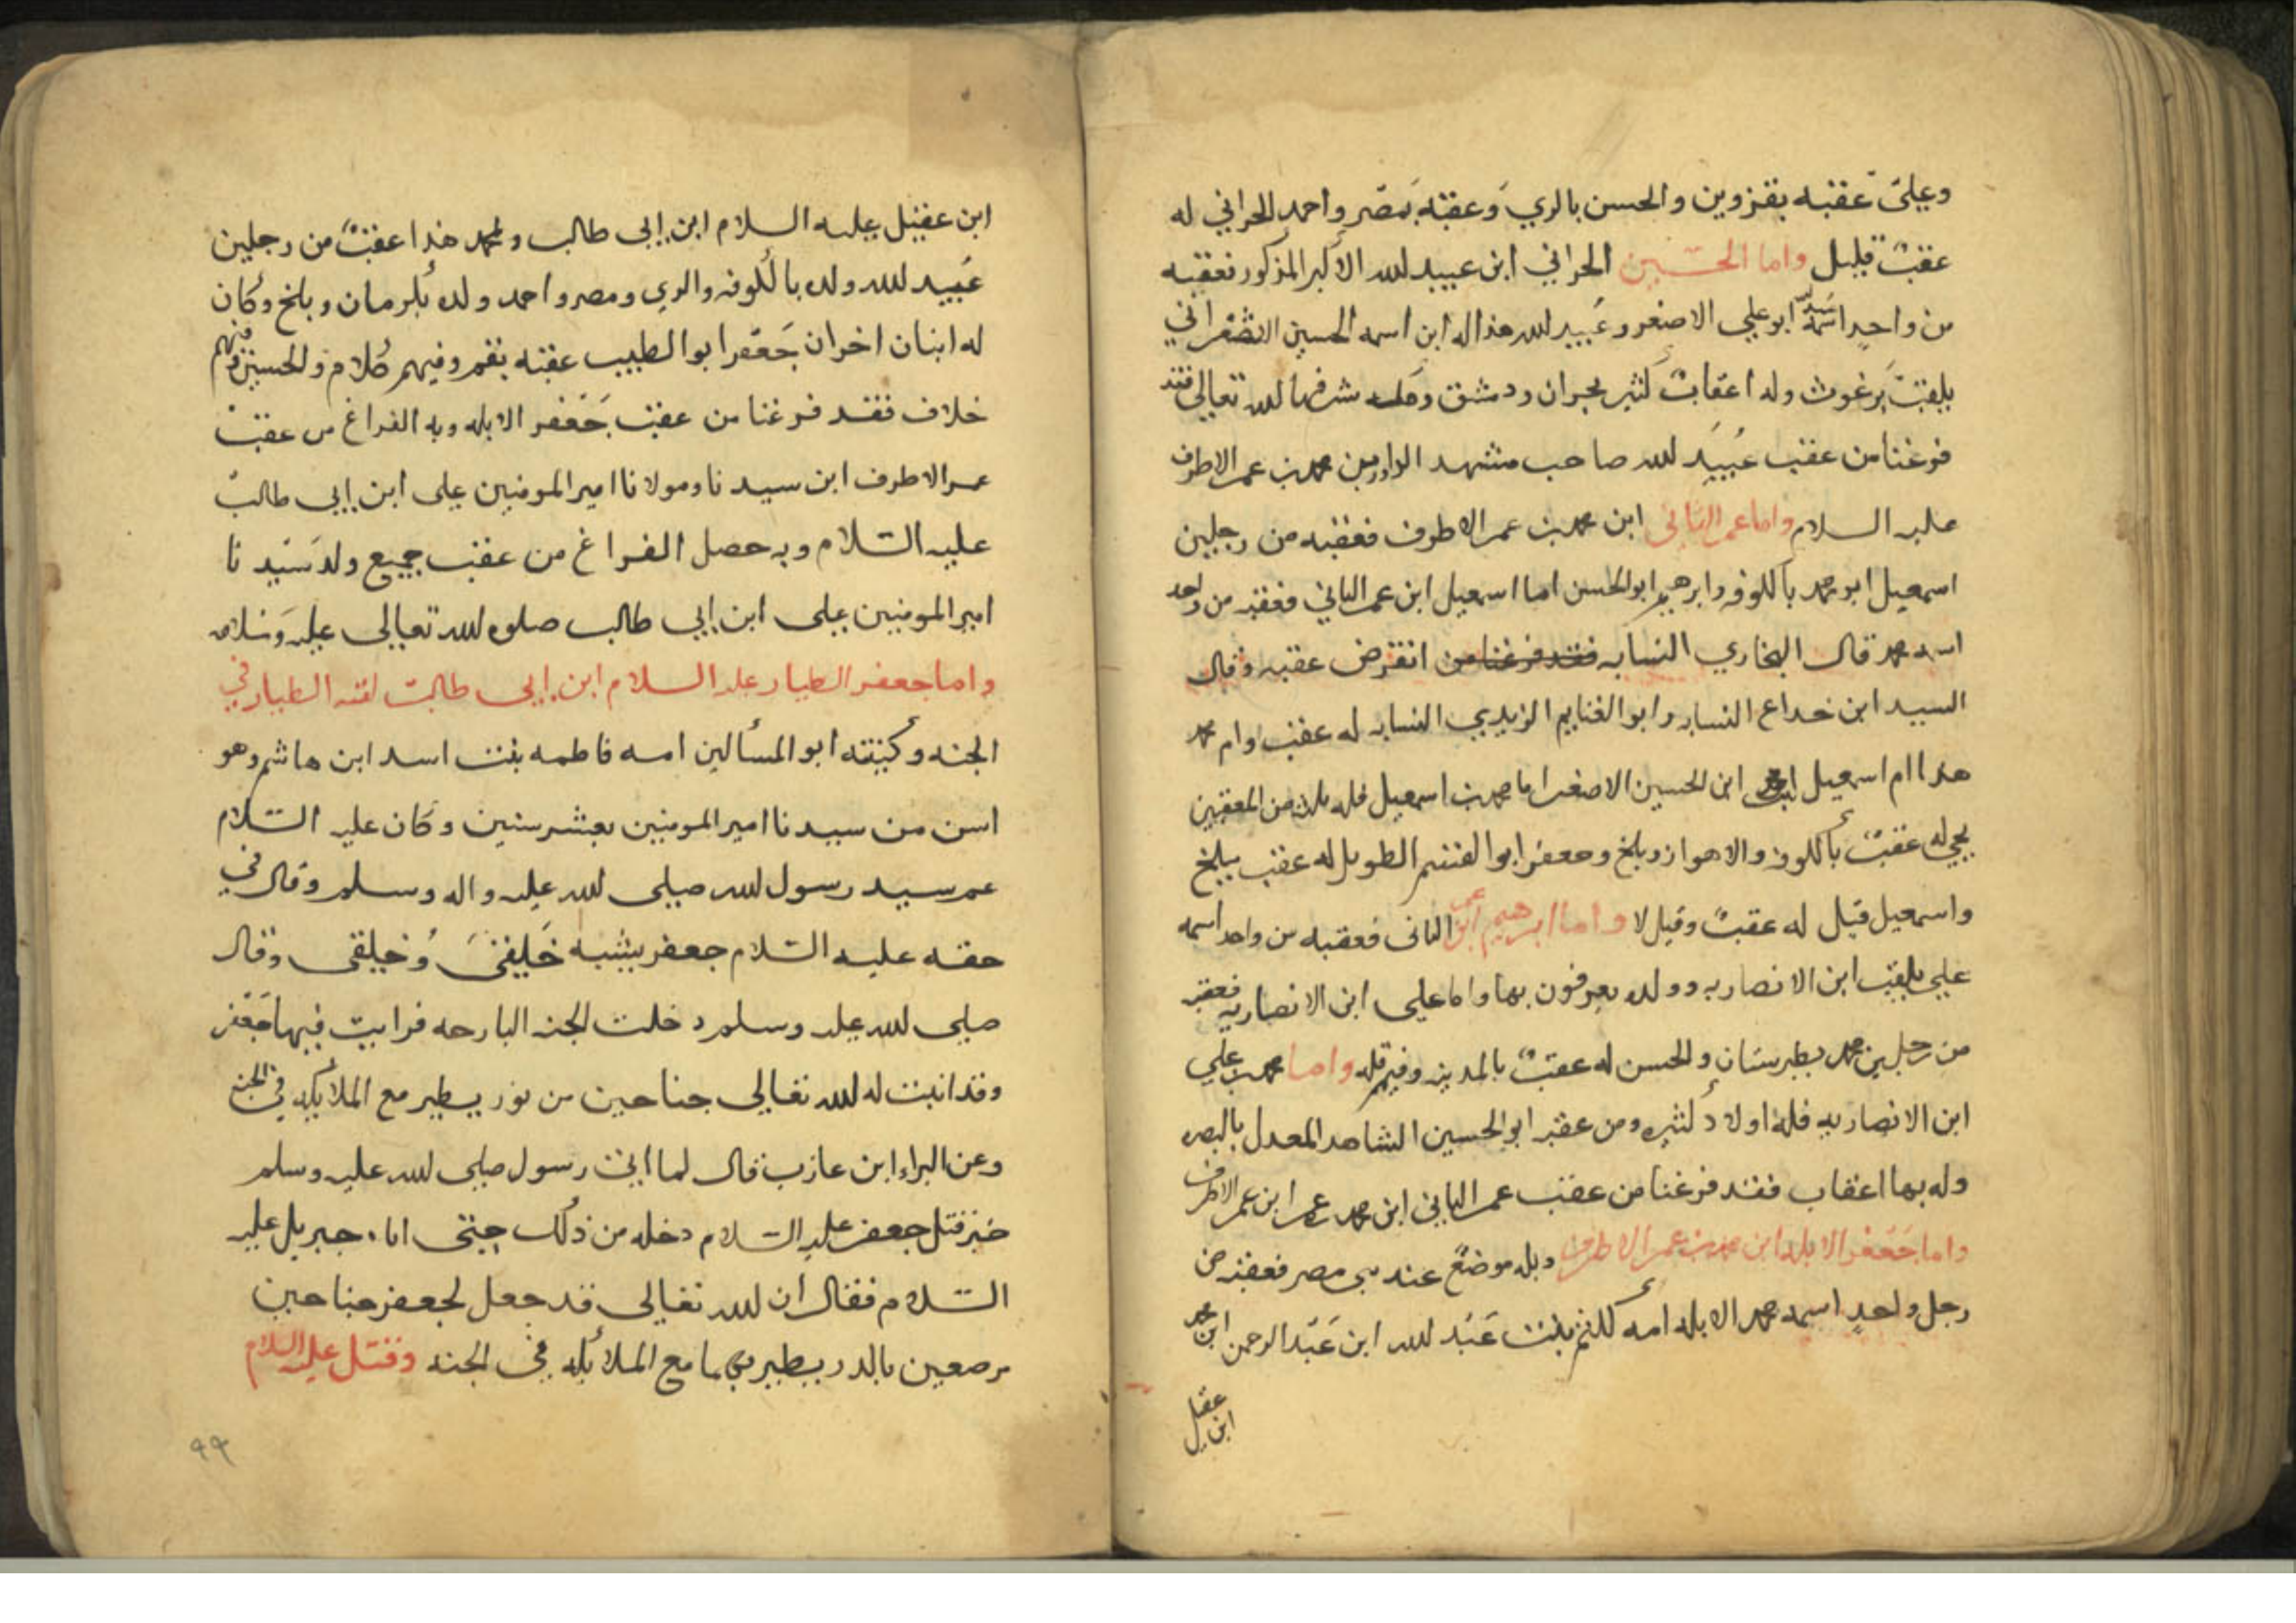 وعلي عقبه بقزوين والحسن بالري وعقبه بمصر واحمد الحراني له
عقب قليل واما الحسين الحراني ابن عبيد لله الاكبر المذكور فعقبه
من واحد اسمه ابو علي الاصغر وعبيد لله هذا له ابن اسمه الحسين
يلقب برغوث وله اعقاب كثير بحران ودمشق شرفها لله تعالى فقد
فرغنا من عقب عبيد لله صاحب مشهد ابن محمد بن عمر الاطرف
عليه السلام واما عمر الثاني ابن محمد بن عمر الاطرف فعقبه من رجلين
اسمعيل ابو محمد بالكوفه وابرهيم ابو الحسن اما اسمعيل ابن عمر الثاني فعقبه من واحد
اسمه محمد قال البخاري النسابه فقد فرغنا من انقرض عقبه وقال
السيد ابن خداع النسابه وابو الغنايم الزيدي النسابه له عقب وام محمد
هذا ام اسمعيل ابن الحسين الاصغر اما محمد بن اسمعيل فله من المعقبين
يحي له عقب بالكوفه والاهواز وبلخ وجعفر ابو القسم الطويل له عقب ببلخ
واسمعيل قيل له عقب وقيل لا واما ابرهيم ابن عمر الثاني فعقبه من واحد اسمه
علي يلقب ابن الانصاريه وولده يعرفون بها واما علي ابن الانصاريه فعقبه
من رجلين محمد بطبرستان والحسن له عقب بالمدينه وفيهم قله واما محمد بن علي
ابن الانصاريه فله اولاد كثيره ومن عقبه ابو الحسين الشاهد المعدل بالبصره
وله بها اعقاب فقد فرغنا من عقب عمر الثاني ابن محمد ابن عمر الاطرف
واما جعفر الابله ابن محمد بن عمر الاطرف وبله موضع عند مصر فعقبه من
رجل واحد اسمه محمد الابله امه كلثم بنت عبد لله ابن عبد الرحمن ابن محمد
ابن عقيل
ابن عقيل عليه السلام ابن ابي طالب ولمحمد هذا عقب من رجلين
عبيد لله ولده بالكوفه والري ومصر واحمد ولده بكرمان وبلخ وكان
له ابنان اخران جعفر ابو الطيب عقبه بقم وفيهم كلام والحسين وفيهم
خلاف فقد فرغنا من عقب جعفر الابله وبه الفراغ من عقب
عمر الاطرف ابن سيدنا ومولانا امير المومنين علي ابن ابي طالب
عليه السلام وبه حصل الفراغ من عقب جميع ولد سيدنا
امير المومنين علي ابن ابي طالب صلوه لله تعالى عليه وسلامه
واما جعفر الطيار عليه السلام ابن ابي طالب لقبه الطيار في
الجنه وكنيته ابو المسألين امه فاطمه بنت اسد ابن هاشم وهو
اسن من سيدنا امير المومنين بعشر سنين وكان عليه السلام
عم سيد رسول لله صلى لله عليه واله وسلم وقال في
حقه عليه السلام جعفر يشبه خلقي وخلقي وقال
صلى لله عليه وسلم دخلت الجنه البارحه فرايت فيها جعفر
وقد انبت له لله تعالى جناحين من نور يطير مع الملائكه في الجنه
وعن البراء ابن عازب قال لما اتى رسول صلى لله عليه وسلم
خبر قتل جعفر عليه السلام دخله من ذلك حتى اتاه جبريل عليه
السلام فقال ان لله تعالى قد جعل لجعفر جناحين
مرصعين بالدر يطير بهما مع الملائكه في الجنه وقتل عليه السلام
٩٩